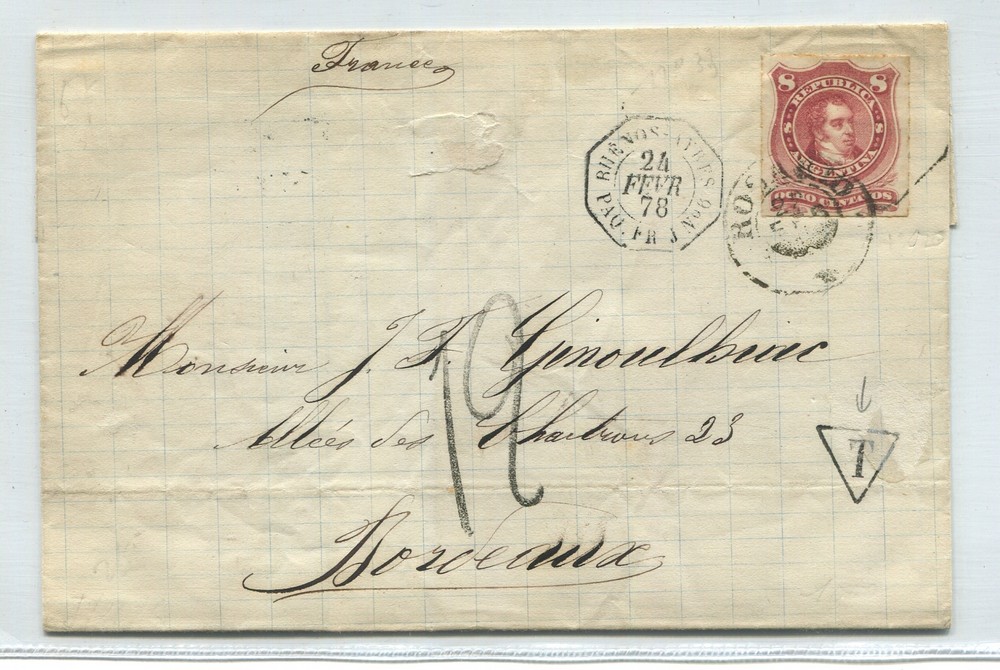 France
8 8
REPUBLICA
ARGENTINA
OCHO CENTAVOS
BUENOS-AYRES
24
FEVR
78
PAQ. FR. J N°6
ROSARIO
Monsieur J. F. Ginoulhiac
12
Allées des Chartrons 23
T
Bordeaux